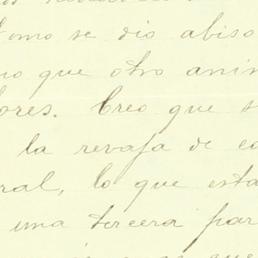 omo se dió abiso
que otro anim
ores. Creo que s
la revaja de co
ral, lo que esta
una tercera par